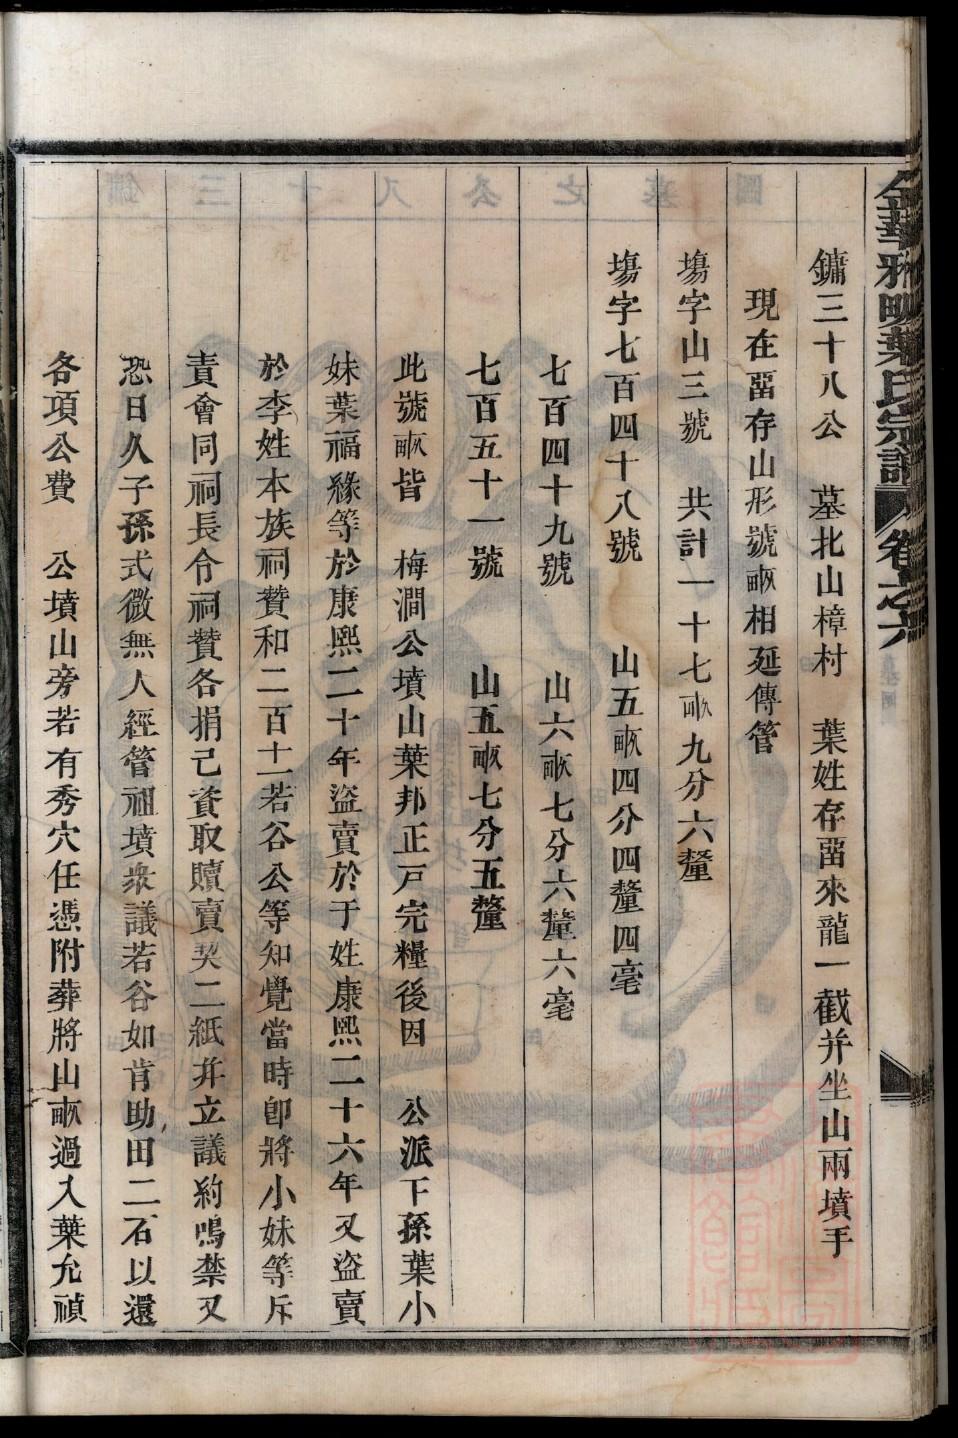 金華雅畈葉氏宗譜 卷之六
鏞三十八公 墓北山樟村 葉姓存畱來龍一截并坐山兩墳手
現在畱存山形號畝相延傳管
塲字山三號 共計一十七畝九分六釐
塲字七百四十八號 山五畝四分四釐四毫
七百四十九號 山六畝七分六釐六毫
七百五十一號 山五畝七分五釐
此號畝皆 梅澗公墳山葉邦正戸完糧後因 公派下孫葉小
妹葉福緣等於康熙二十年盜賣於于姓康熙二十六年又盜賣
於李姓本族祠贊和二百十一若谷公等知覺當時卽將小妹等斥
責會同祠長令祠贊各捐己資取贖賣契二紙并立議約鳴禁又
恐日久子孫式微無人經管祖墳衆議若谷如肯助田二石以還
各項公費 公墳山旁若有秀穴任憑附葬將山畝過入葉允禎